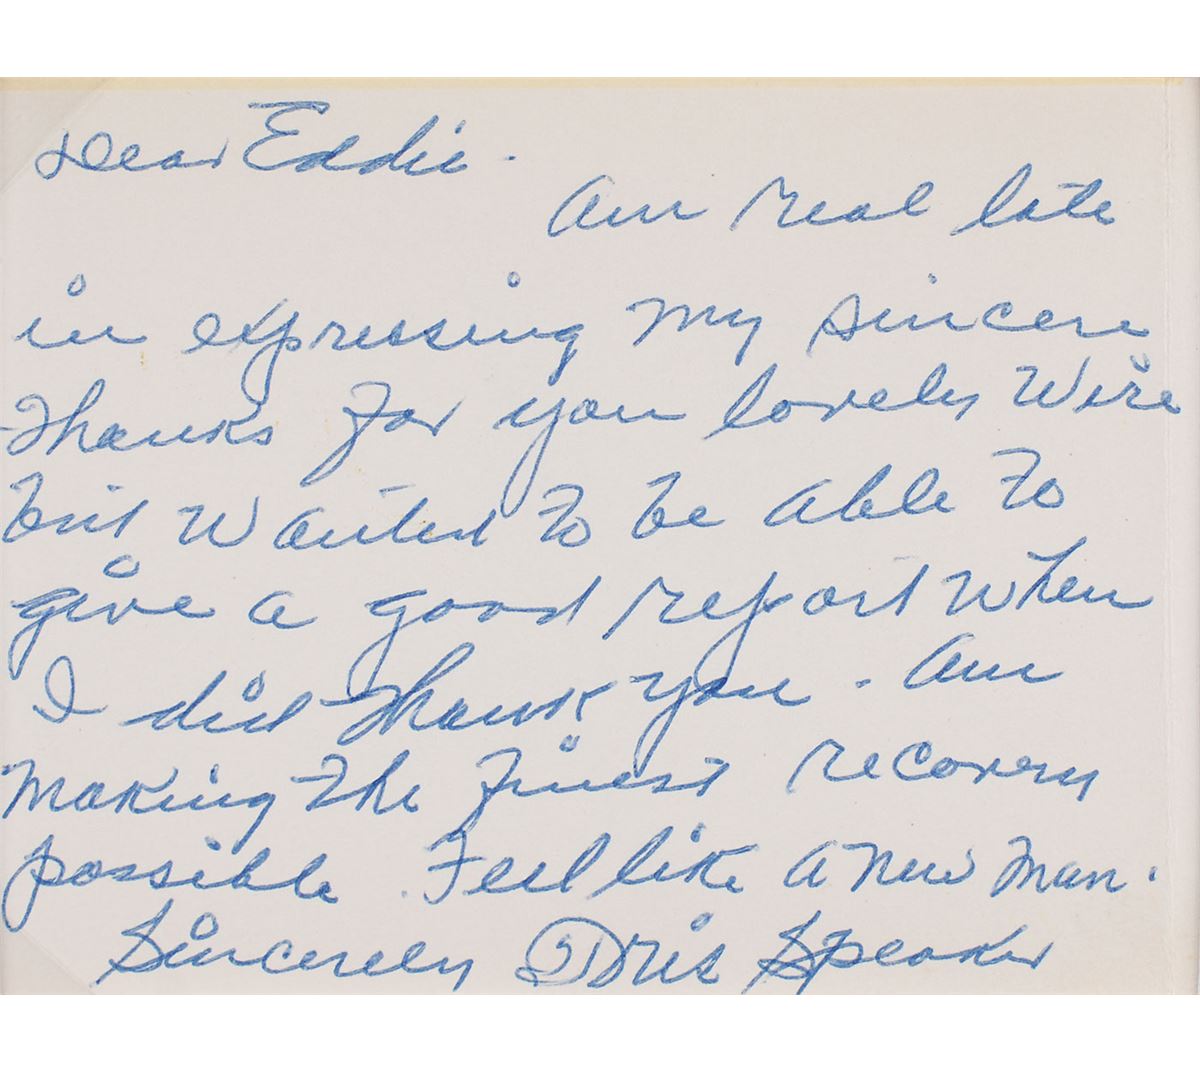 Dear Eddie.
Am real late
in expressing my sincere
thanks for you lovely wire
but wanted to be able to
give a good report when
I did thank you. Am
making the finest recovery
possible. Feel like a new man.
Sincerely Tris Speaker